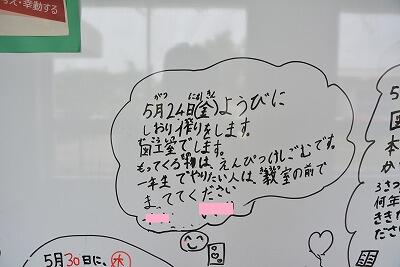 考え・幸動する
5月24日(金)ようびに
がつ にち きん
しおり作りをします。
図工室でします。
もってくる物は、えんぴつけしごむです。
一年生でやりたい人は教室の前で
まっててください
5月30日に、(水)
5
本
か
3さつ
何年
ききな
ださい